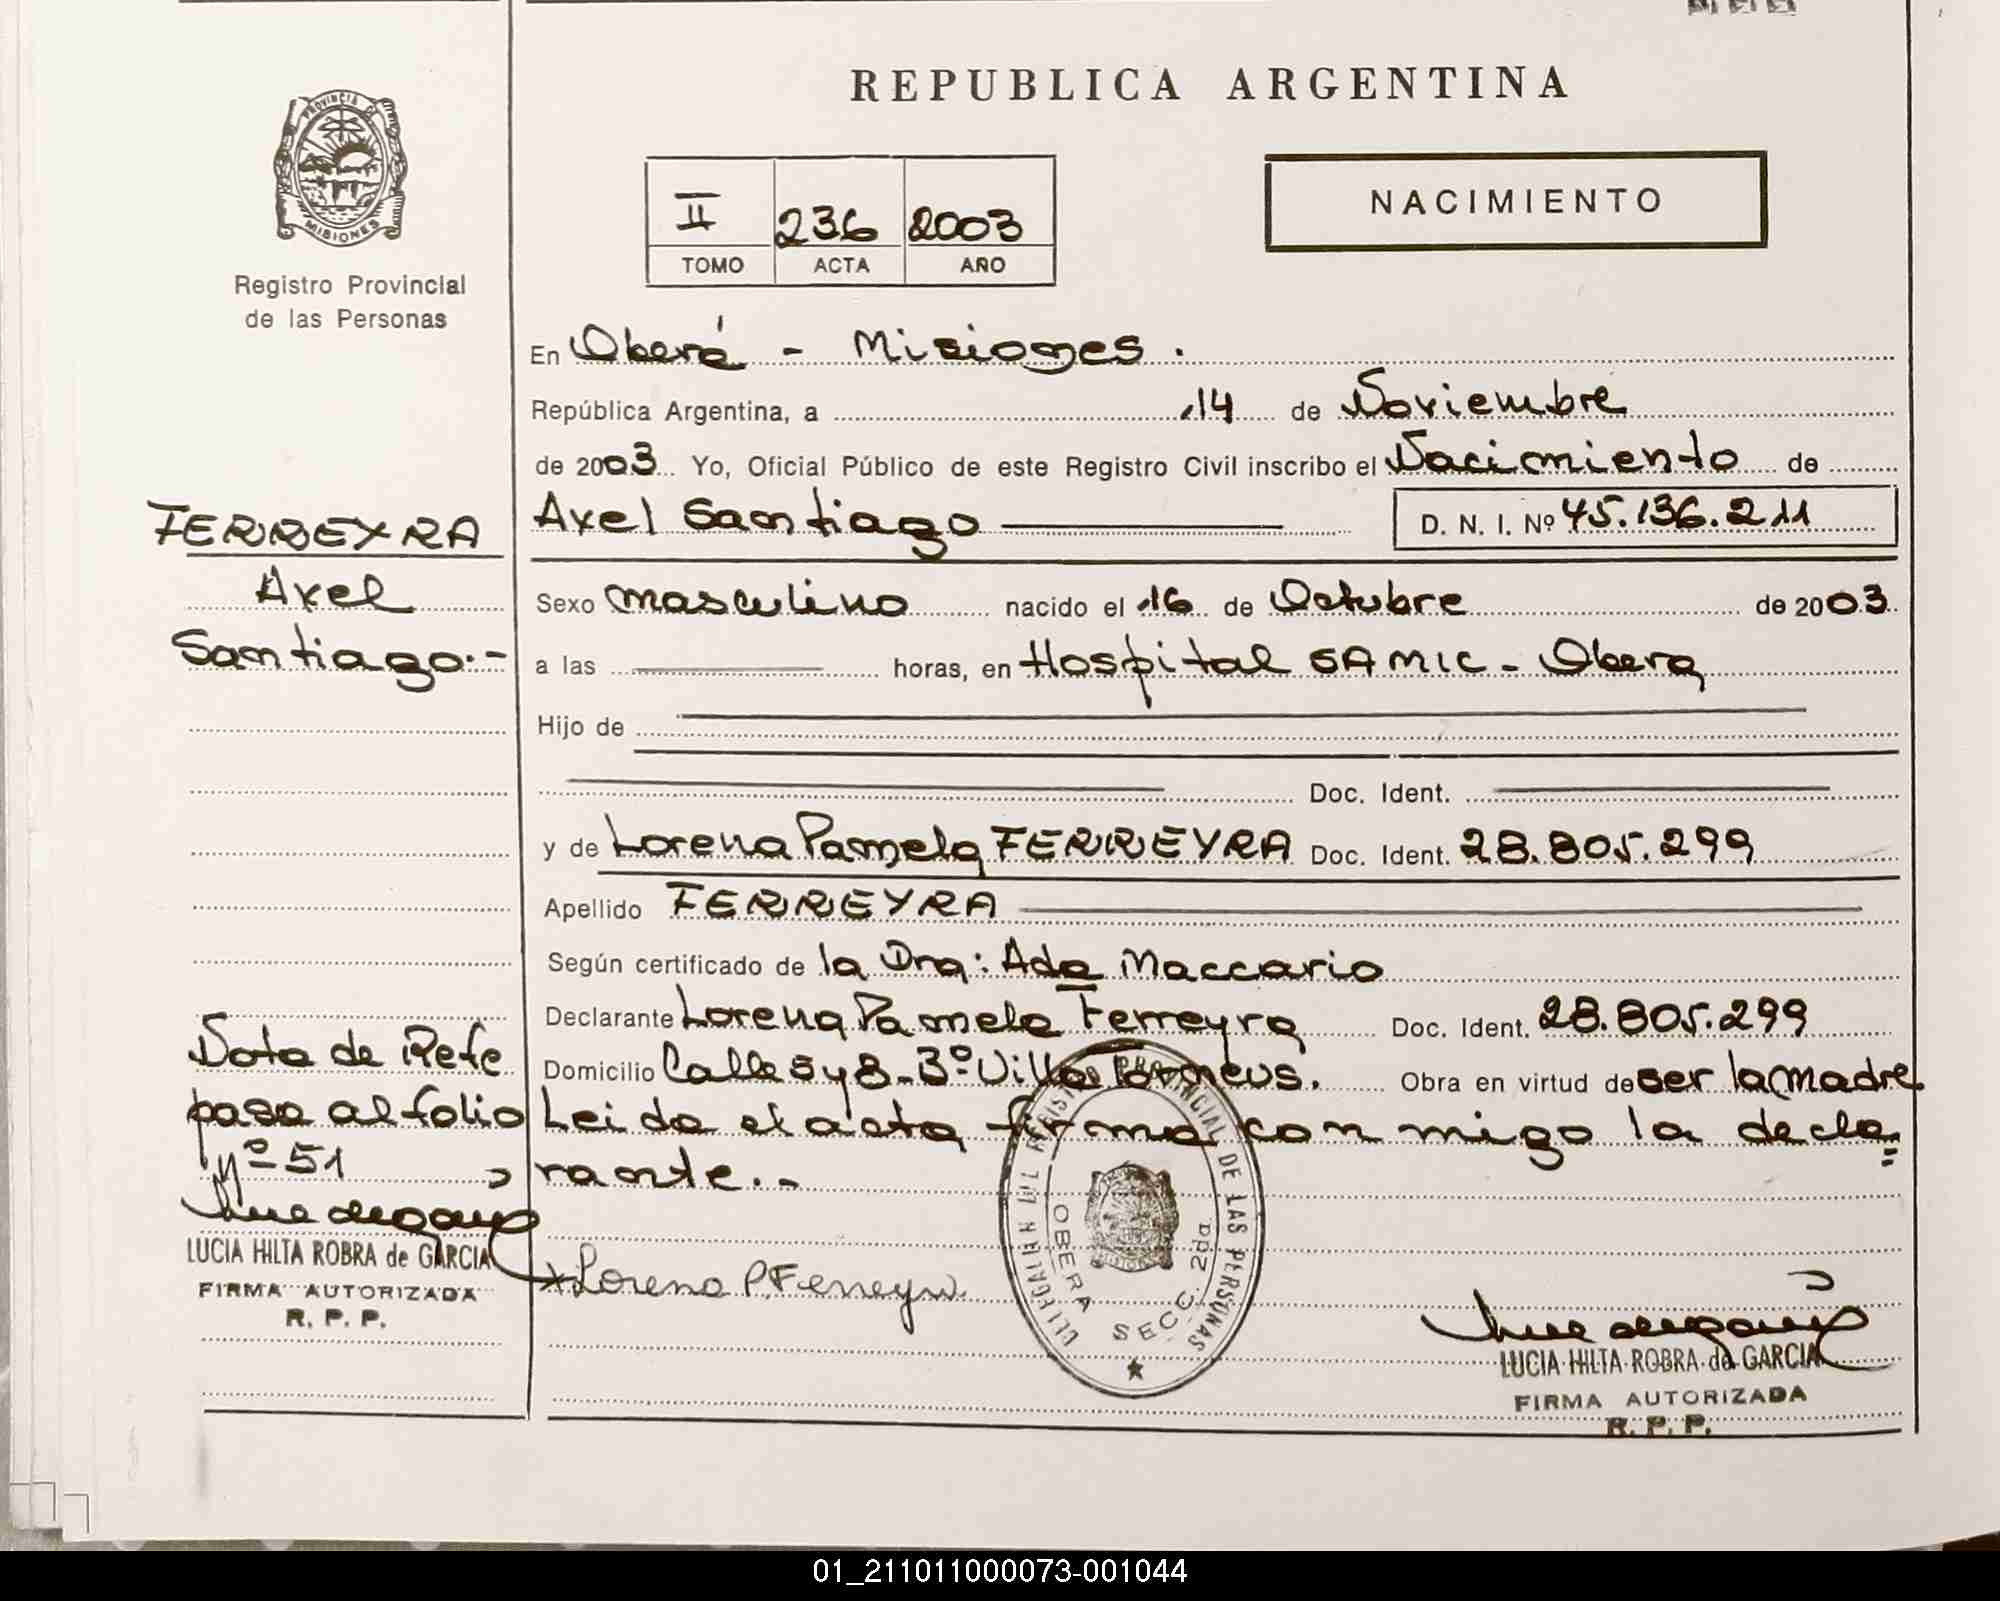 REPUBLICA ARGENTINA
NACIMIENTO
II 236 2003
TOMO ACTA AÑO
PROVINCIA DE MISIONES
Registro Provincial
de las Personas
En Oberá - Misiones.
República Argentina, a 14 de Noviembre
de 2003 Yo, Oficial Público de este Registro Civil inscribo el Nacimiento de
Axel Santiago D. N. I. Nº 45.136.211
FERREYRA
Axel
Santiago.-
Sexo masculino nacido el 16 de Octubre de 2003
a las horas, en Hospital SAMIC - Obera
Hijo de
Doc. Ident.
y de Lorena Pamela FERREYRA Doc. Ident. 28.805.299
Apellido FERREYRA
Según certificado de la Dra: Ada Maccario
Declarante Lorena Pamela Ferreyra Doc. Ident. 28.805.299
Domicilio Calle 5 y 8 - Bº Villa Obra en virtud de ser la madre
Leida el acta firma con migo la decla
rante.-
Nota de Refe
pasa al folio
Nº 51
LUCIA HILTA ROBRA de GARCIA
FIRMA AUTORIZADA
R. P. P.
Lorena P. Ferreyra
DELEGACION DEL REGISTRO PROVINCIAL DE LAS PERSONAS
OBERA SECC. 2da
LUCIA HILTA ROBRA de GARCIA
FIRMA AUTORIZADA
R. P. P.
01_211011000073-001044